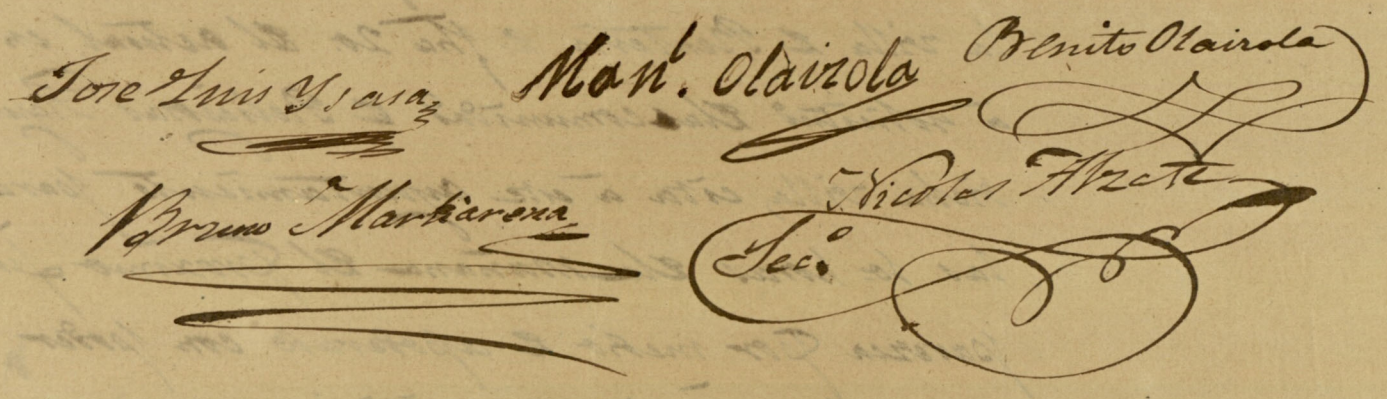 Jose Luis Ysasa
Man.l Olaizola
Benito Olaizola
Bruno Martiarena
Nicolas Alzate
Sec.o